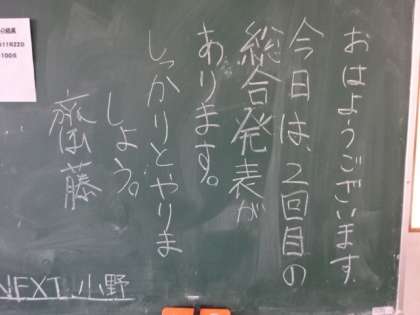 おはようございます
今日は、2回目の
総合発表が
あります。
しっかりとやりま
しょう。
齋藤
NEXT 小野
11月22日
100点